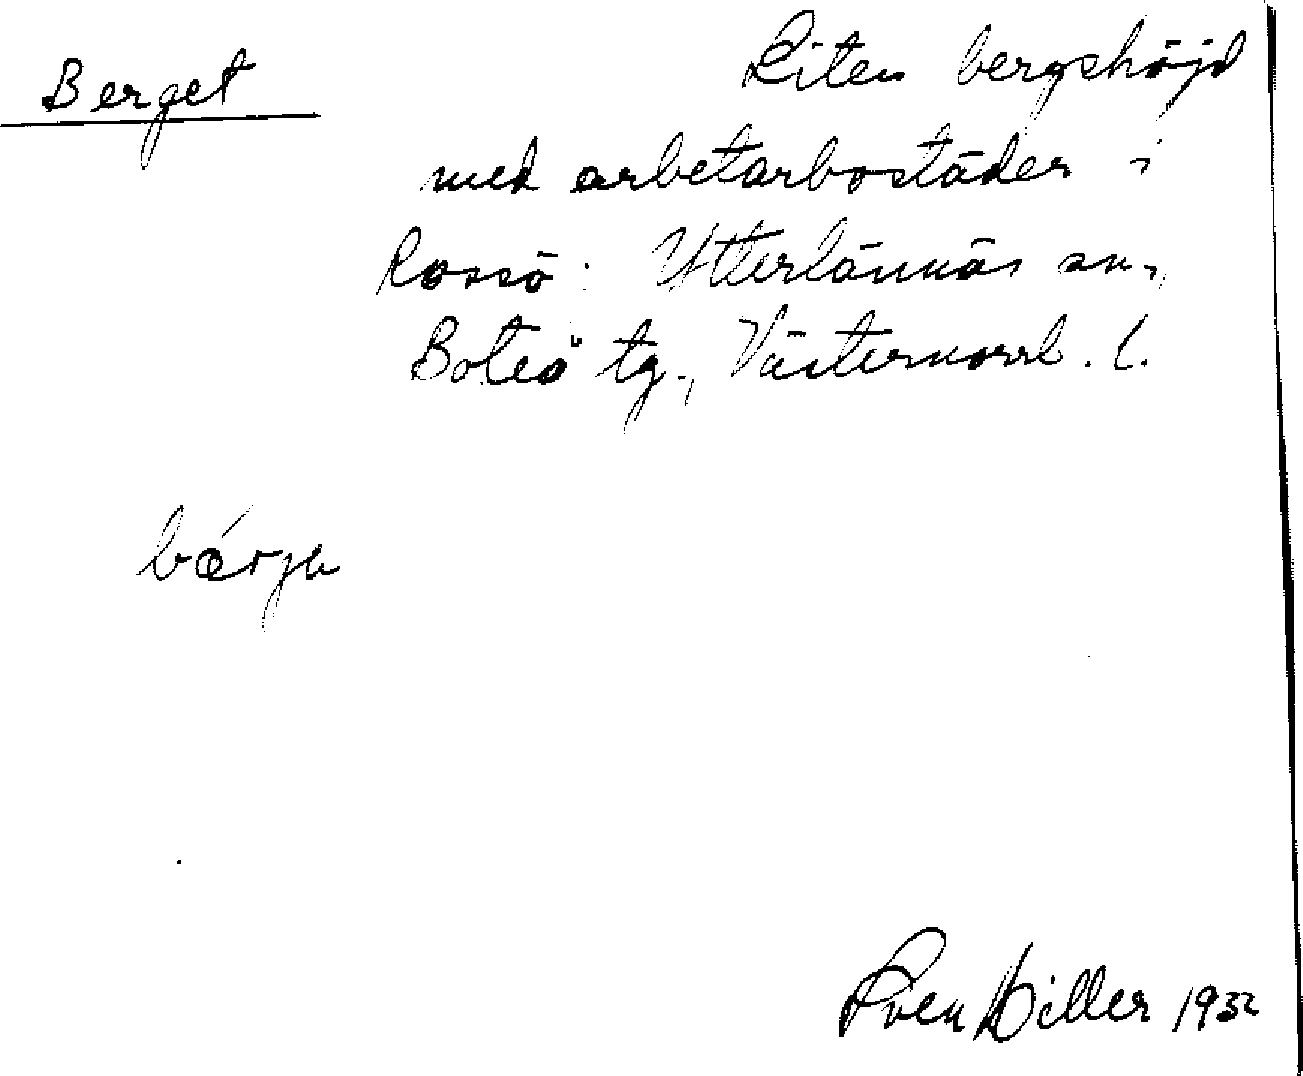 Berget
Liten bergshöjd
med arbetarbostäder i
Rossö: Ytterlännäs sn.,
Boteå tg., Västernorrl. l.
bǽrjə
Sven Hiller 1932